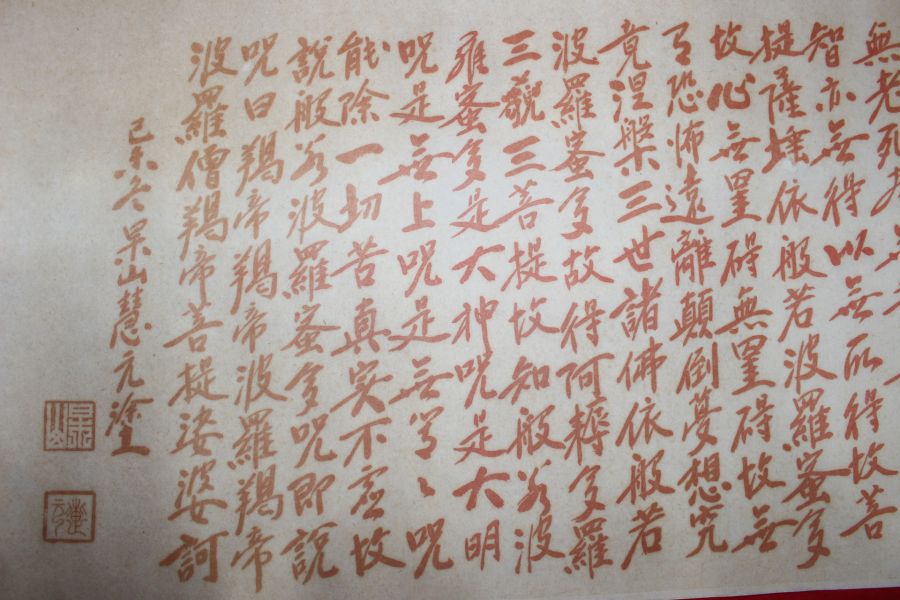 無老死亦無
智亦無得以無所得故菩
提薩埵依般若波羅蜜多
故心無罣碍無罣碍故無
有恐怖遠離顛倒夢想究
竟涅槃三世諸佛依般若
波羅蜜多故得阿耨多羅
三藐三菩提故知般若波
羅蜜多是大神咒是大明
咒是無上咒是無等〻咒
能除一切苦真実不虚故
說般若波羅蜜多咒即說
咒曰羯帝羯帝波羅羯帝
波羅僧羯帝菩提娑婆訶
己未冬杲山慧元塗
杲山
慧元